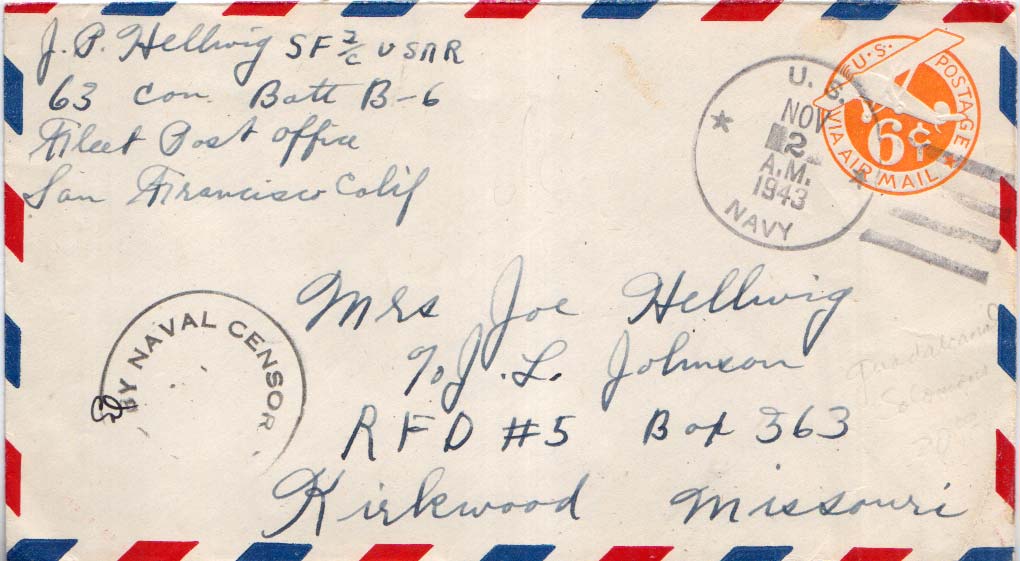 J. P. Hellwig SF 2/c USNR
63 Con. Batt B-6
Fleet Post Office
San Francisco Calif
U. S.
NOV
2
A.M.
1943
NAVY
U.S. POSTAGE
6¢
VIA AIR MAIL
BY NAVAL CENSOR
Mrs Joe Hellwig
℅ J. L. Johnson
RFD #5 Box 363
Kirkwood Missouri
Guadalcanal
Solomons